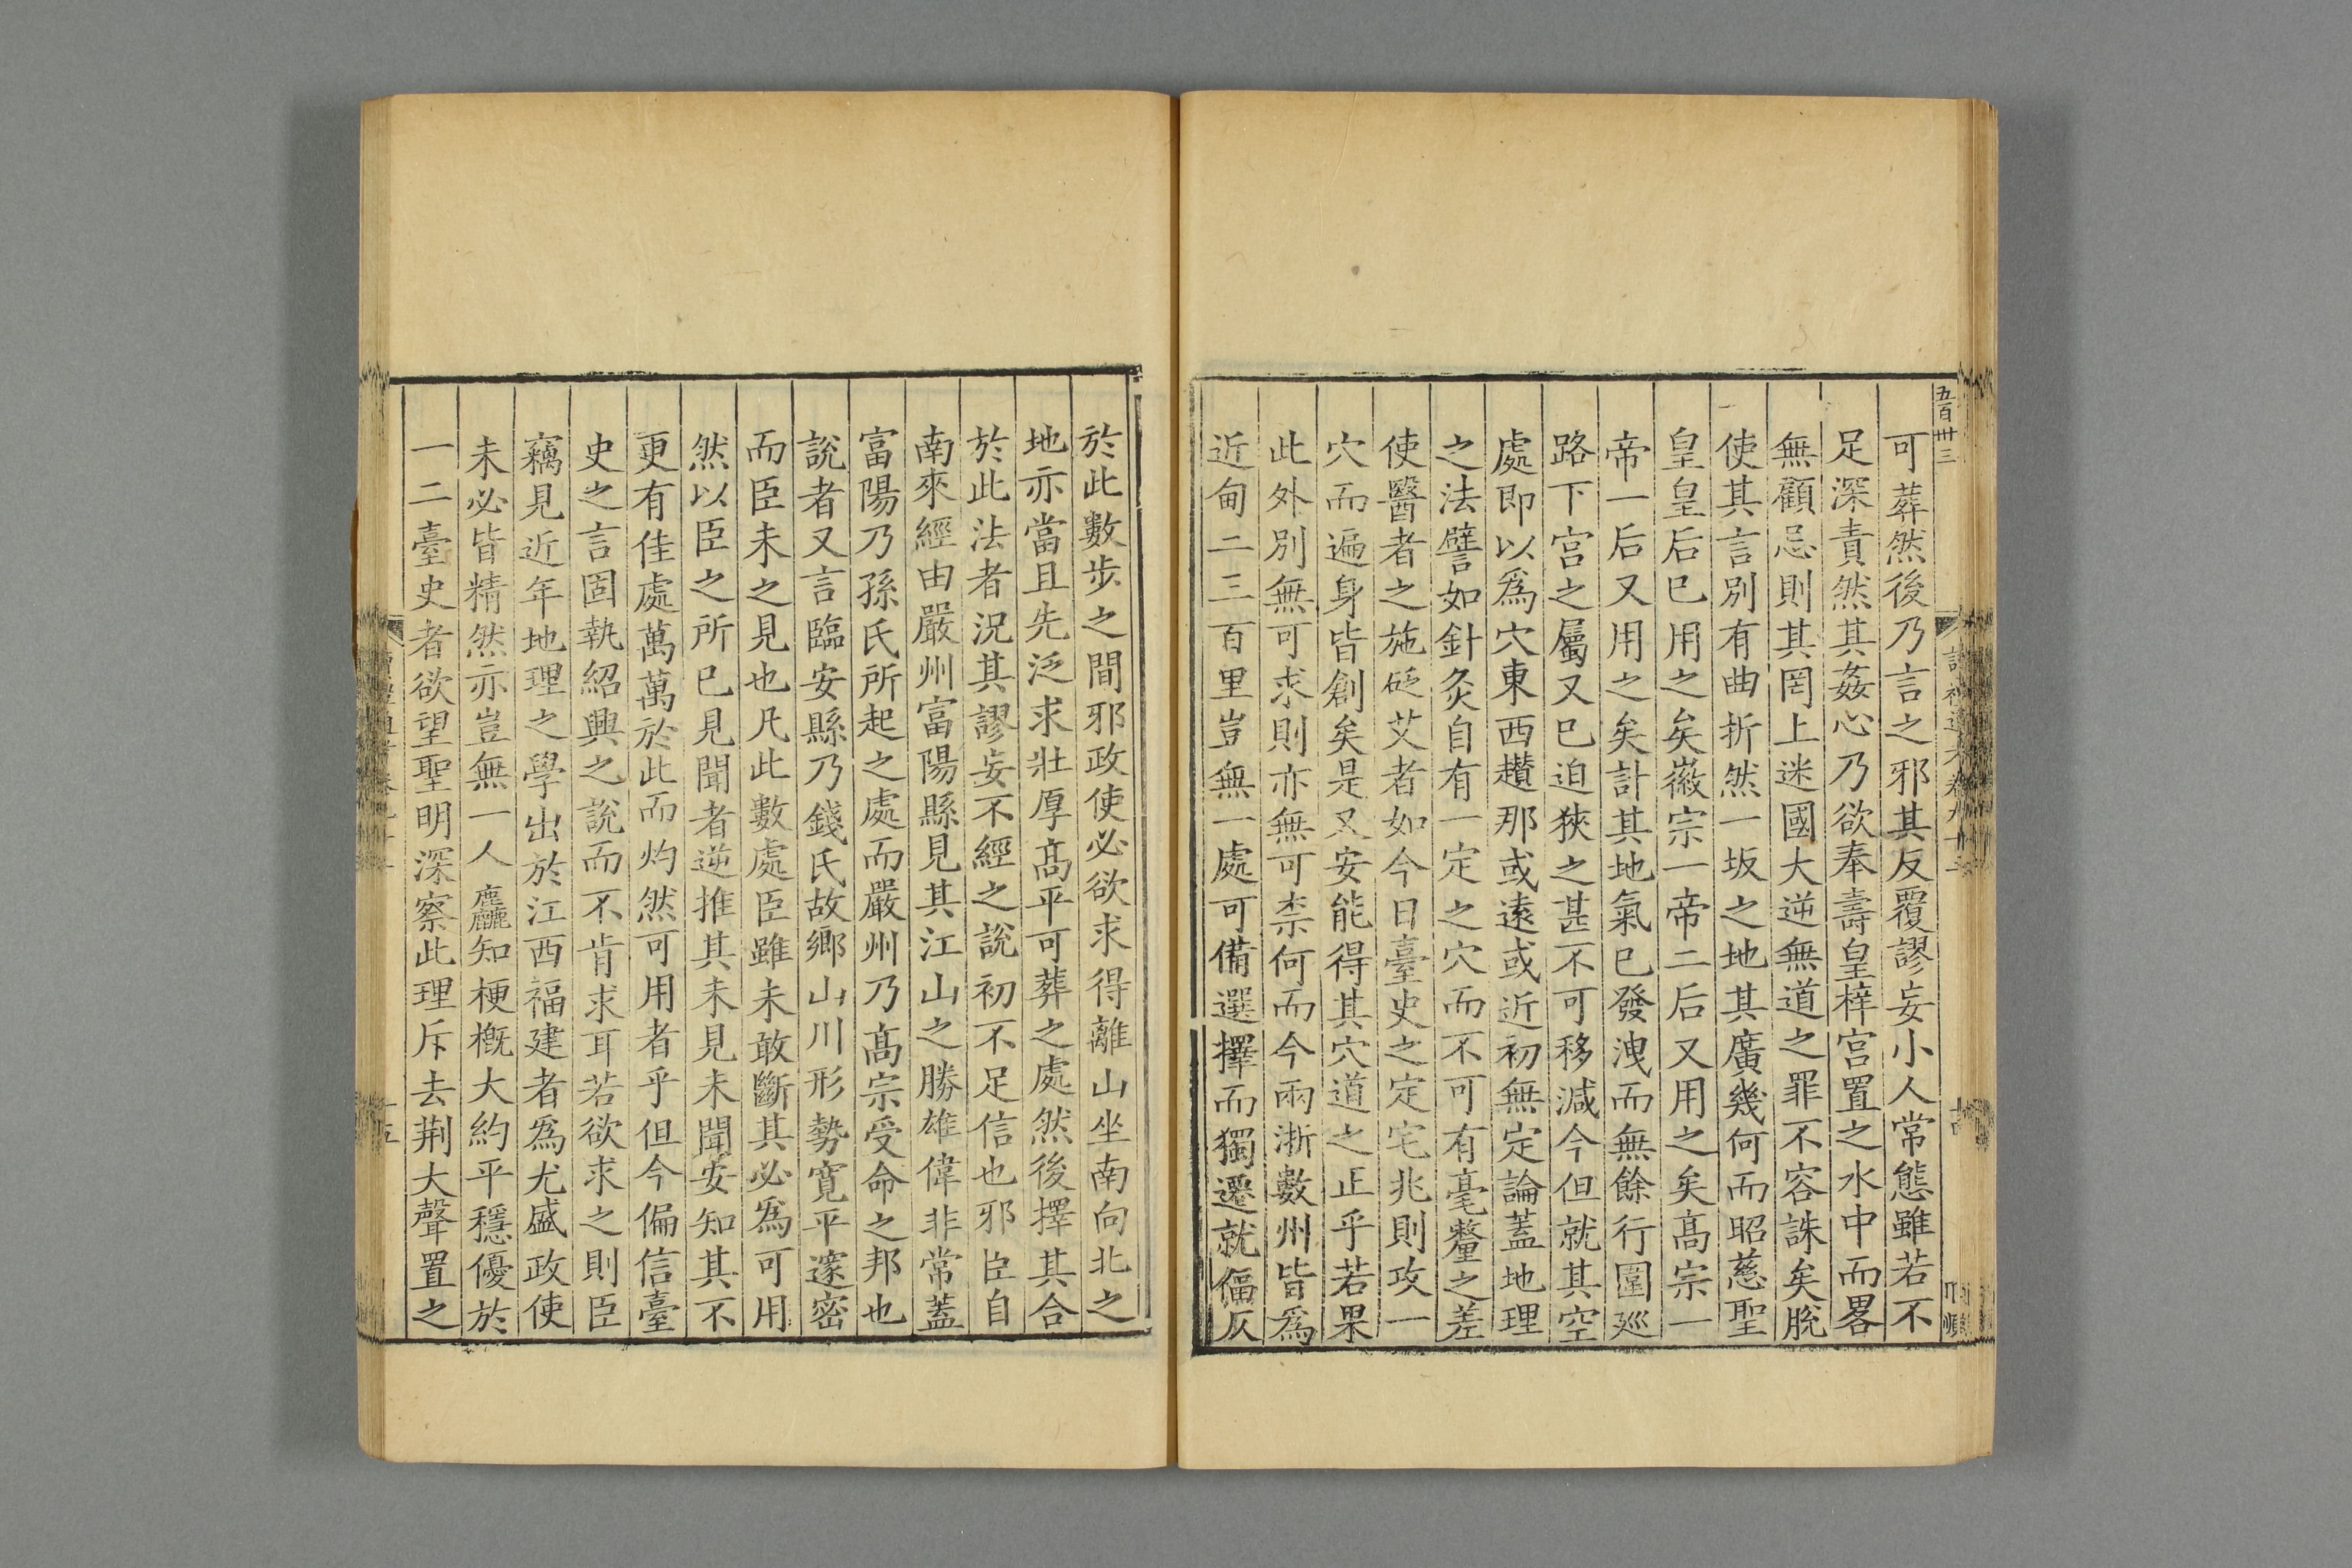 五百卅三
可葬然後乃言之邪其反覆謬妄小人常態雖若不
足深責然其姦心乃欲奉壽皇梓宮置之水中而畧
無顧忌則其罔上迷國大逆無道之罪不容誅矣脫
使其言別有曲折然一坂之地其廣幾何而昭慈聖
皇皇后已用之矣徽宗一帝二后又用之矣髙宗一
帝一后又用之矣計其地氣已發洩而無餘行圍廵
路下宫之屬又已迫狹之甚不可移減今但就其空
處即以爲穴東西趲那或遠或近初無定論蓋地理
之法譬如針灸自有一定之穴而不可有毫釐之差
使醫者之施砭艾者如今日臺史之定宅兆則攻一
穴而遍身皆創矣是又安能得其穴道之正乎若果
此外別無可求則亦無可柰何而今兩淅數州皆爲
近甸二三百里豈無一處可備選擇而獨遷就偪仄
於此數步之間邪政使必欲求得離山坐南向北之
地亦當且先泛求壯厚髙平可葬之處然後擇其合
於此法者況其謬妄不經之說初不足信也邪臣自
南來經由嚴州富陽縣見其江山之勝雄偉非常蓋
富陽乃孫氏所起之處而嚴州乃髙宗受命之邦也
說者又言臨安縣乃錢氏故鄉山川形勢寛平邃密
而臣未之見也凡此數處臣雖未敢斷其必爲可用
然以臣之所已見聞者逆推其未見未聞安知其不
更有佳處萬萬於此而灼然可用者乎但今偏信臺
史之言固執紹興之說而不肯求耳若欲求之則臣
竊見近年地理之學出於江西福建者爲尤盛政使
未必皆精然亦豈無一人麤知梗槪大約平穩優於
一二臺史者欲望聖明深察此理斥去荆大聲置之